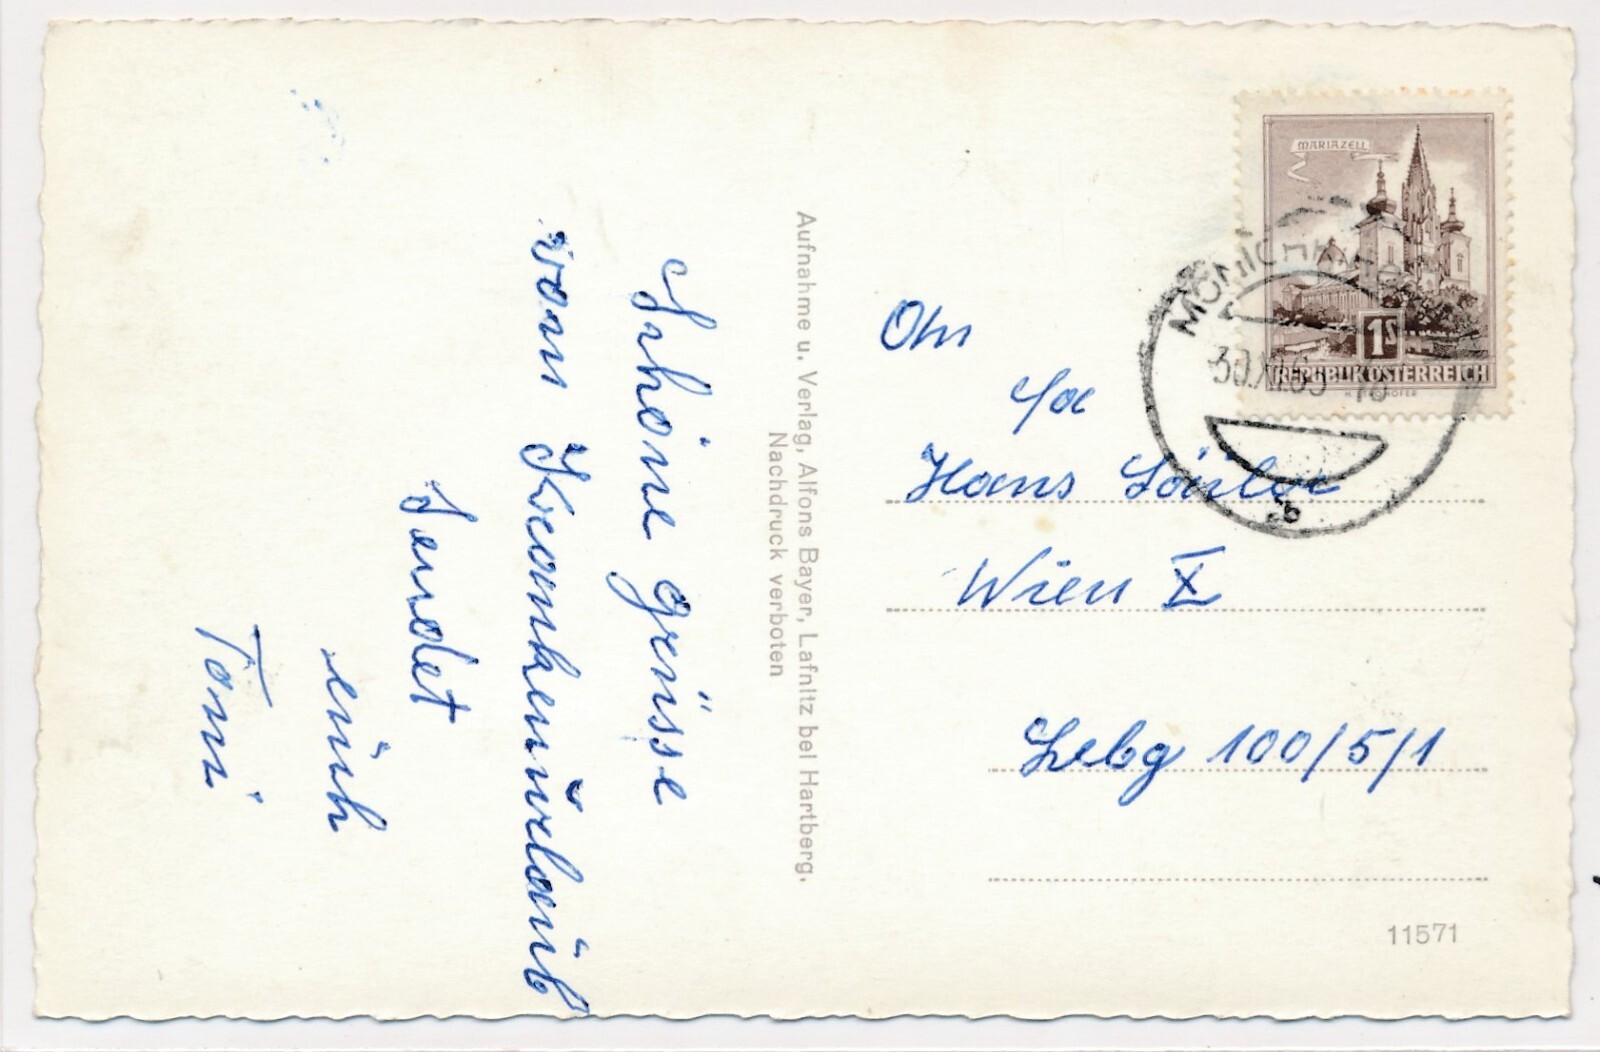 Schöne grüsse
vom Krankenurlaub
sendet
euch
Toni
Aufnahme u. Verlag, Alfons Bayer, Lafnitz bei Hartberg.
Nachdruck verboten
An
Fa
Hans
Wien X
Lebg 100/5/1
11571
MARIAZELL
1S
REPUBLIK ÖSTERREICH
30.XI.65
b